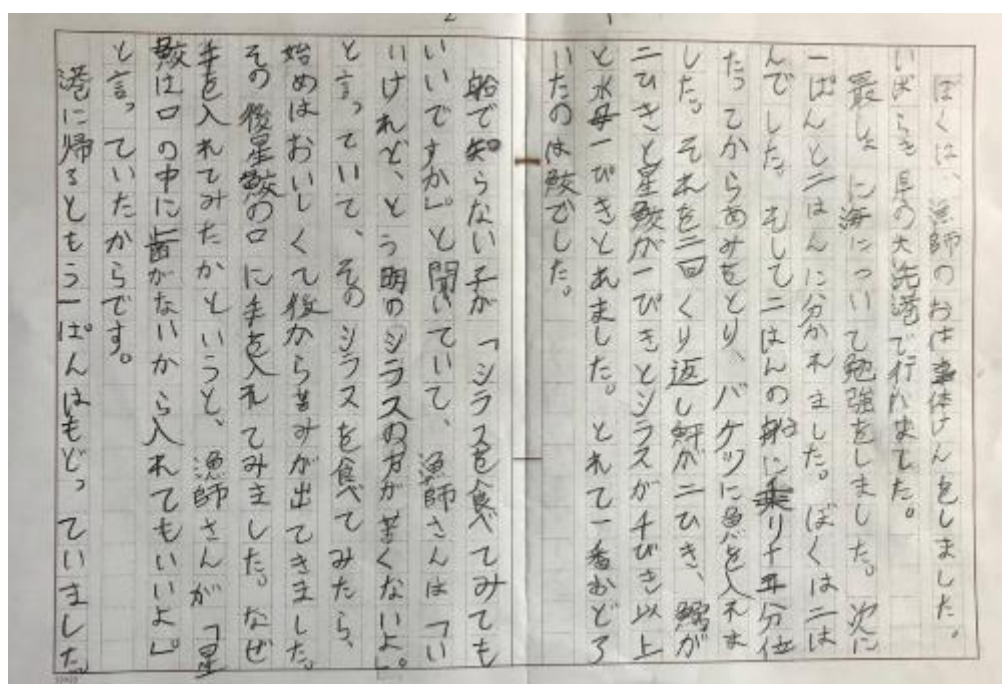 ぼくは、漁師のお仕事体けんをしました。
いばらき県の大洗港で行れました。
最しょに海について勉強をしました。次に
一ぱんと二はんに分かれました。ぼくは二は
んでした。そして二はんの船に乗り十五分位
たってからあみをとり、バケツに魚を入れま
した。それを二回くり返し鮃が二ひき、鰯が
二ひきと星鮫が一ぴきとシラスが千びき以上
と水母一ぴきとれました。とれて一番おどろ
いたのは鮫でした。
船で知らない子が「シラスを食べてみても
いいですか」。と聞いていて、漁師さんは「い
いけれど、とう明のシラスの方が苦くないよ」。
と言っていて、そのシラスを食べてみたら、
始めはおいしくて後から苦みが出てきました。
その後星鮫の口に手を入れてみました。なぜ
手を入れてみたかというと、漁師さんが「星
鮫は口の中に歯がないから入れてもいいよ」。
と言っていたからです。
港に帰るともう一ぱんはもどっていました。